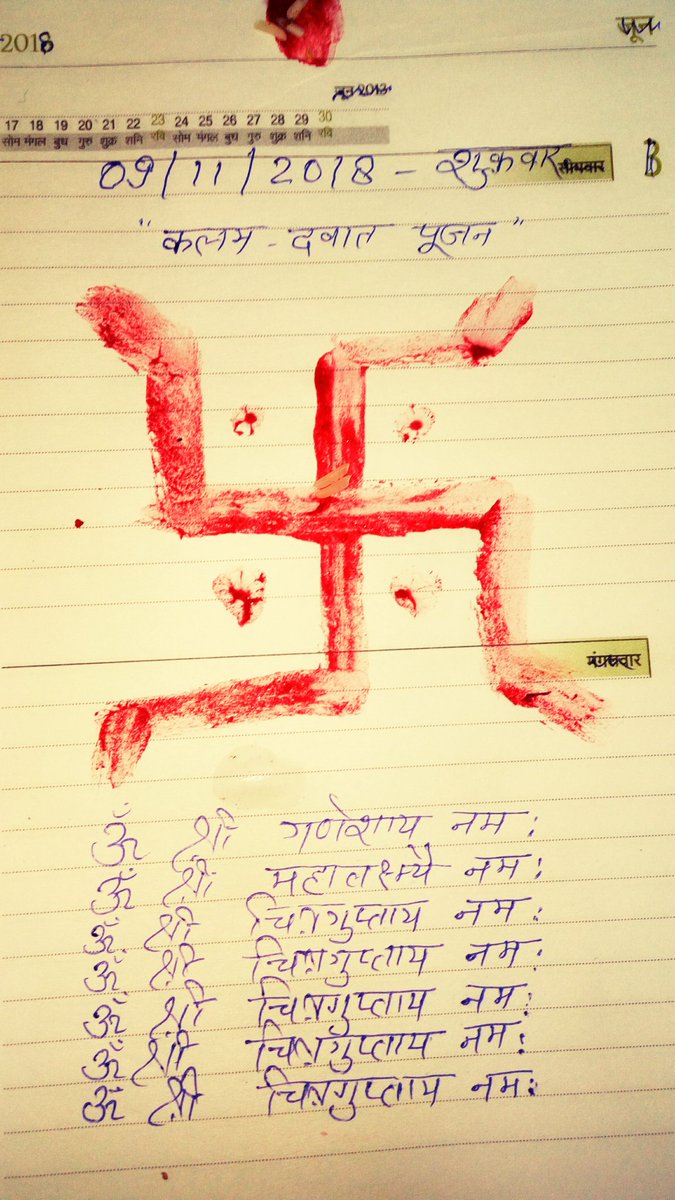 2018
जून
जून 2013
17 18 19 20 21 22 23 24 25 26 27 28 29 30
सोम मंगल बुध गुरु शुक्र शनि रवि सोम मंगल बुध गुरु शुक्र शनि रवि
09/11/2018 - शुक्रवार सोमवार
"कलम - दवात पूजन"
मंगलवार
ॐ श्री गणेशाय नमः
ॐ श्री महालक्ष्म्यै नमः
ॐ श्री चित्रगुप्ताय नमः
ॐ श्री चित्रगुप्ताय नमः
ॐ श्री चित्रगुप्ताय नमः
ॐ श्री चित्रगुप्ताय नमः
ॐ श्री चित्रगुप्ताय नमः